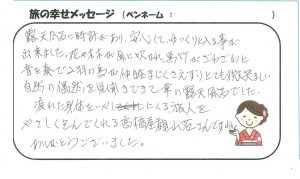 旅の幸せメッセージ（ペンネーム：　　　）
露天風呂に時計があり、安心して、ゆっくりと入る事が
出来ました。花や木々が風に吹かれ、葉がざわざわと
音を奏で二羽の鳥が仲睦まじくさえずりとても微笑ましい
自然の偶然を見聞きできて幸の露天風呂でした。
疲れた身体をいやしにくる旅人を
やさしくつつんでくれる高橋屋観山荘さんですね。
ありがとうございました。